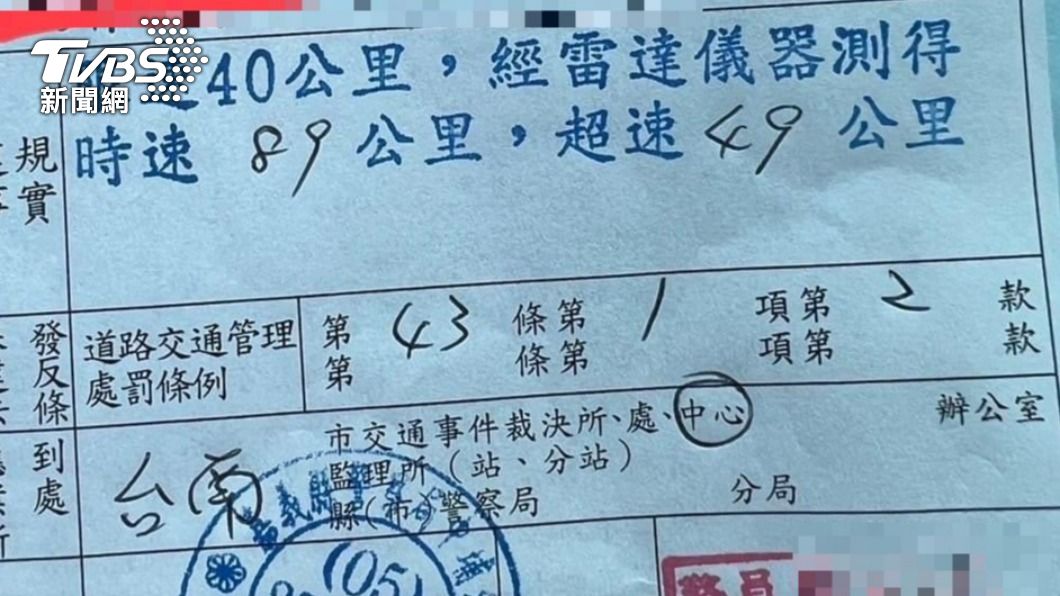 TVBS
新聞網
40公里，經雷達儀器測得
時速 89 公里，超速 49 公里
規
實
發
反
條
道路交通管理
處罰條例
第 43 條第 1 項第 2 款
第 條第 項第 款
到
處
台南
市交通事件裁決所、處、中心 辦公室
監理所（站、分站）
縣（市）警察局 分局
嘉義縣警察
(05)
警員